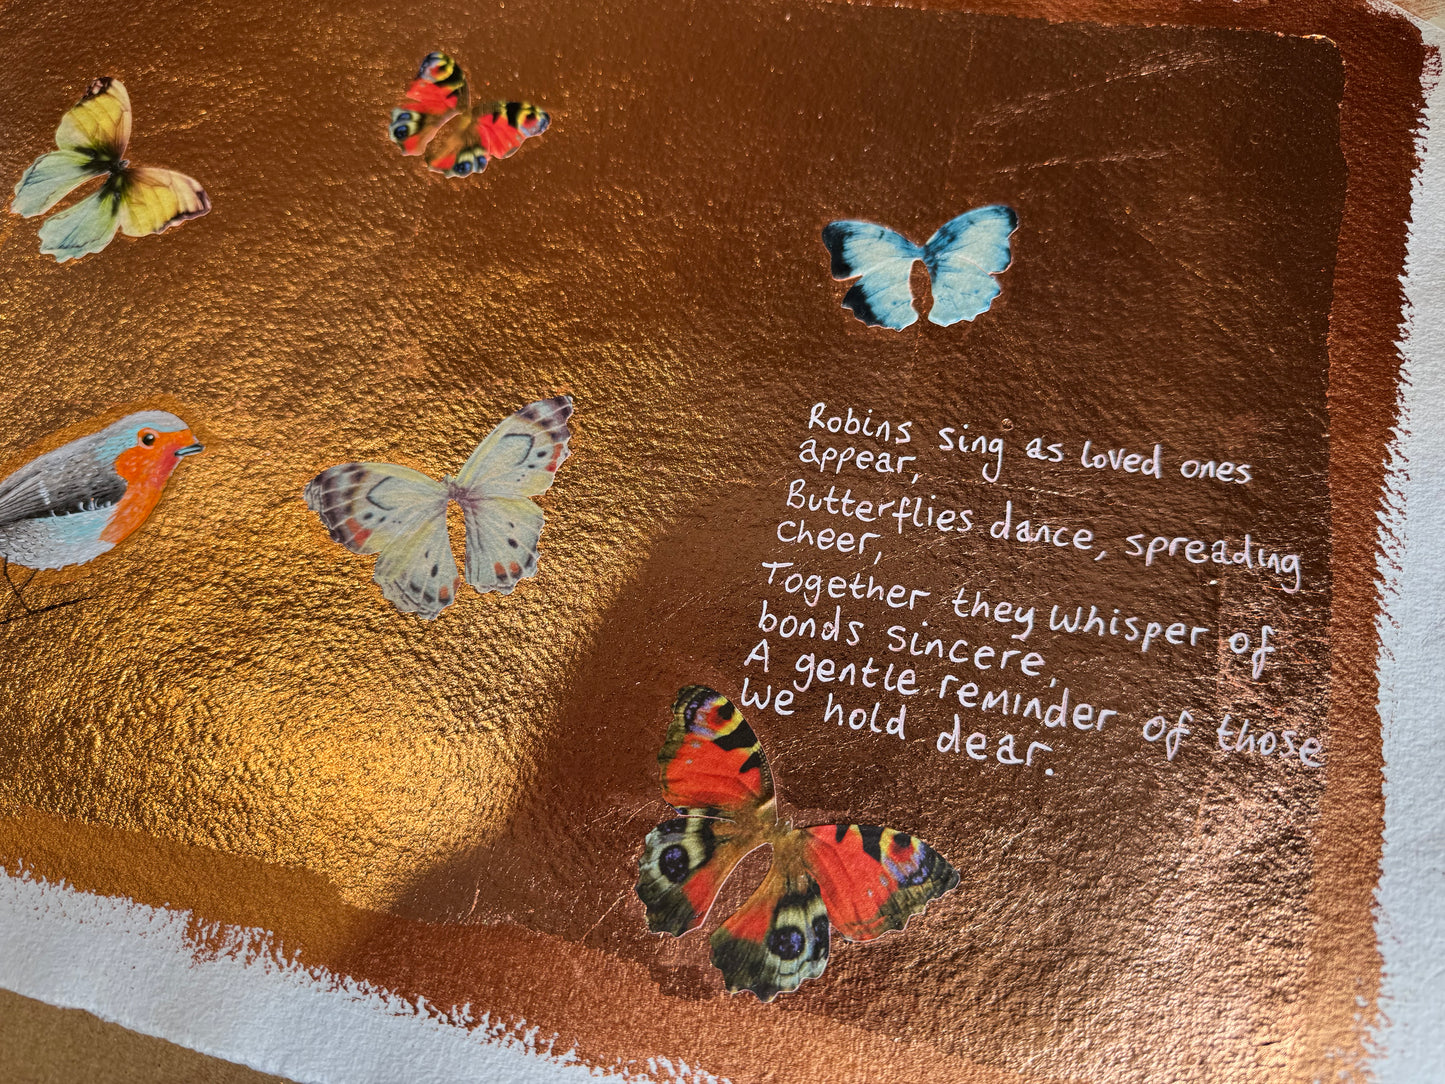 Robins sing as loved ones
appear,
Butterflies dance, spreading
cheer,
Together they whisper of
bonds sincere,
A gentle reminder of those
we hold dear.